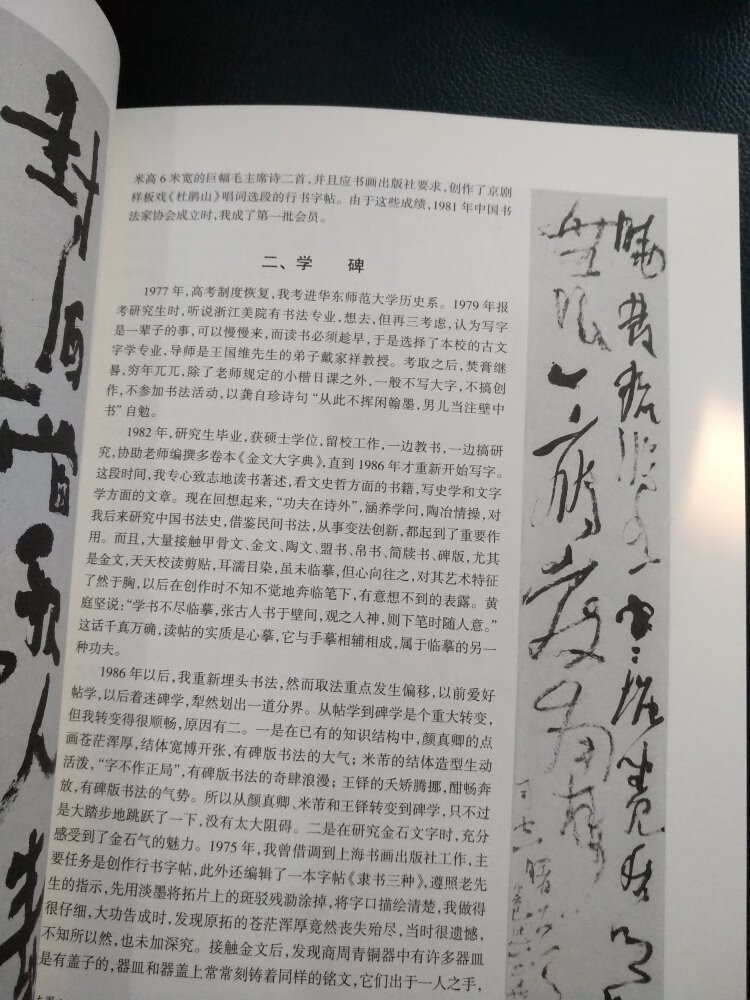 米高6米宽的巨幅毛主席诗二首,并且应书画出版社要求,创作了京剧
样板戏《杜鹃山》唱词选段的行书字帖。由于这些成绩,1981年中国书
法家协会成立时,我成了第一批会员。
二、学 碑
1977年,高考制度恢复,我考进华东师范大学历史系。1979年报
考研究生时,听说浙江美院有书法专业,想去,但再三考虑,认为写字
是一辈子的事,可以慢慢来,而读书必须趁早,于是选择了本校的古文
字学专业,导师是王国维先生的弟子戴家祥教授。考取之后,焚膏继
晷,穷年兀兀,除了老师规定的小楷日课之外,一般不写大字,不搞创
作,不参加书法活动,以龚自珍诗句“从此不挥闲翰墨,男儿当注壁中
书”自勉。
1982年,研究生毕业,获硕士学位,留校工作,一边教书,一边搞研
究,协助老师编撰多卷本《金文大字典》,直到1986年才重新开始写字。
这段时间,我专心致志地读书著述,看文史哲方面的书籍,写史学和文字
学方面的文章。现在回想起来,“功夫在诗外”,涵养学问,陶冶情操,对
我后来研究中国书法史,借鉴民间书法,从事变法创新,都起到了重要作
用。而且,大量接触甲骨文、金文、陶文、盟书、帛书、简牍书、碑版,尤其
是金文,天天校读剪贴,耳濡目染,虽未临摹,但心向往之,对其艺术特征
了然于胸,以后在创作时不知不觉地奔临笔下,有意想不到的表露。黄
庭坚说:“学书不尽临摹,张古人书于壁间,观之入神,则下笔时随人意。”
这话千真万确,读帖的实质是心摹,它与手摹相辅相成,属于临摹的另一
种功夫。
1986年以后,我重新埋头书法,然而取法重点发生偏移,以前爱好
帖学,以后着迷碑学,犁然划出一道分界。从帖学到碑学是个重大转变,
但我转变得很顺畅,原因有二。一是在已有的知识结构中,颜真卿的点
画苍茫浑厚,结体宽博开张,有碑版书法的大气;米芾的结体造型生动
活泼,“字不作正局”,有碑版书法的奇肆浪漫;王铎的夭矫腾挪,酣畅奔
放,有碑版书法的气势。所以从颜真卿、米芾和王铎转变到碑学,只不过
是大踏步地跳跃了一下,没有太大阻碍。二是在研究金石文字时,充分
感受到了金石气的魅力。1975年,我曾借调到上海书画出版社工作,主
要任务是创作行书字帖,此外还编辑了一本字帖《隶书三种》,遵照老先
生的指示,先用淡墨将拓片上的斑驳残泐涂掉,将字口描绘清楚,我做得
很仔细,大功告成时,发现原拓的苍茫浑厚竟然丧失殆尽,当时很遗憾,
不知所以然,也未加深究。接触金文后,发现商周青铜器中有许多器皿
是有盖子的,器皿和器盖上常常刻铸着同样的铭文,它们出于一人之手,